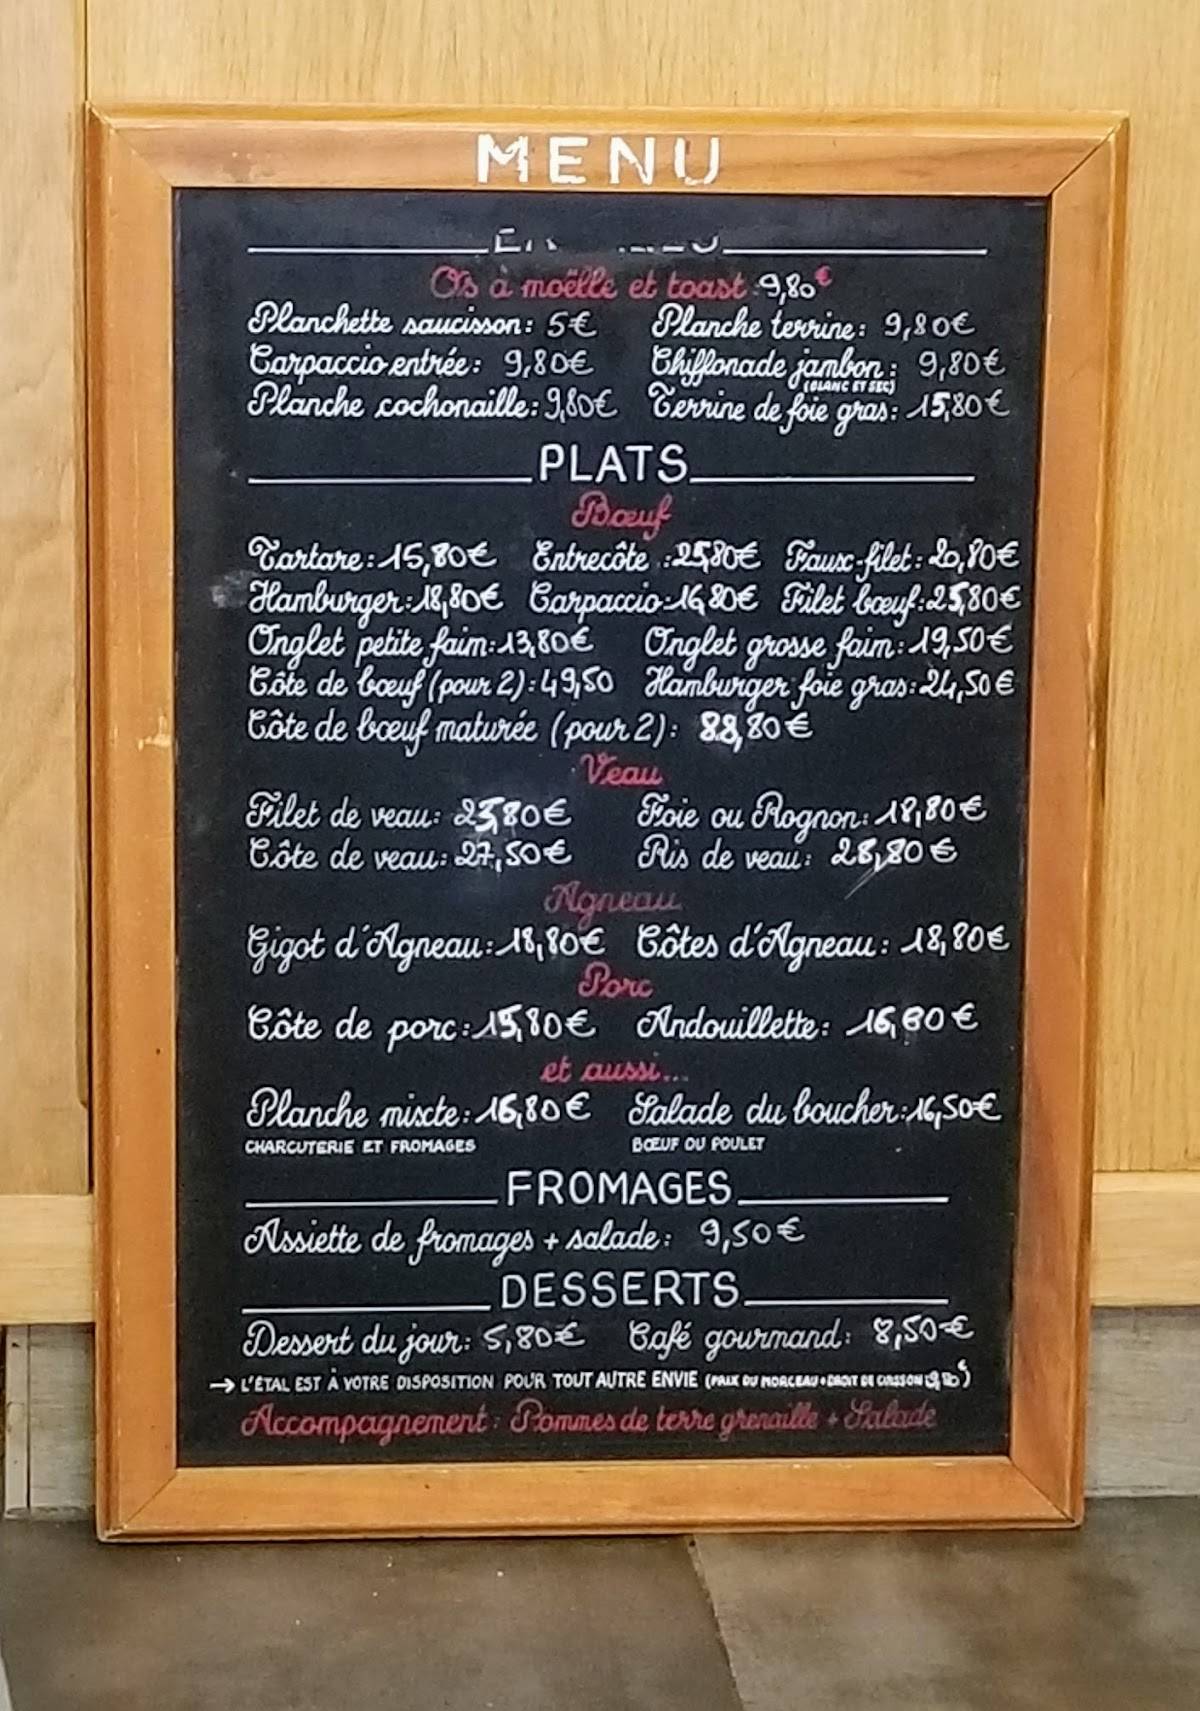 MENU
Os à moëlle et toast 9,80€
Planchette saucisson: 5€ Planche terrine: 9,80€
Carpaccio entrée: 9,80€ Chiffonade jambon: 9,80€
(BLANC ET SEC)
Planche cochonaille: 9,80€ Terrine de foie gras: 15,80€
PLATS
Bœuf
Tartare: 15,80€ Entrecôte: 25,80€ Faux-filet: 20,80€
Hamburger: 18,80€ Carpaccio: 16,80€ Filet bœuf: 25,80€
Onglet petite faim: 13,80€ Onglet grosse faim: 19,50€
Côte de bœuf (pour 2): 49,50 Hamburger foie gras: 24,50€
Côte de bœuf maturée (pour 2): 88,80€
Veau
Filet de veau: 25,80€ Foie ou Rognon: 18,80€
Côte de veau: 27,50€ Ris de veau: 28,80€
Agneau
Gigot d'Agneau: 18,80€ Côtes d'Agneau: 18,80€
Porc
Côte de porc: 15,80€ Andouillette: 16,80€
et aussi...
Planche mixte: 16,80€ Salade du boucher: 16,50€
CHARCUTERIE ET FROMAGES BŒUF OU POULET
FROMAGES
Assiette de fromages + salade: 9,50€
DESSERTS
Dessert du jour: 5,80€ Café gourmand: 8,50€
→ L'ÉTAL EST À VOTRE DISPOSITION POUR TOUT AUTRE ENVIE (PRIX DU MORCEAU + DROIT DE CUISSON
Accompagnement: Pommes de terre grenaille + Salade